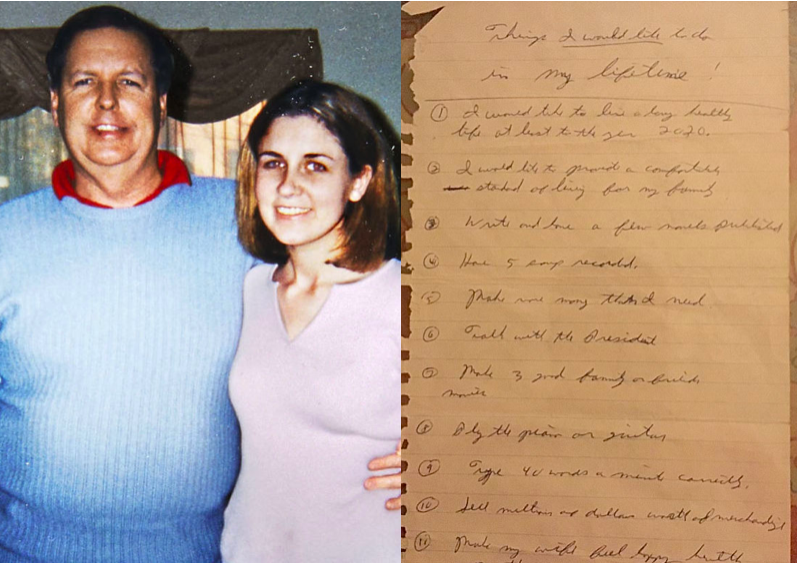 Things I would like to do
in my lifetime!
① I would like to live a long healthy
life at least to the year 2020.
② I would like to provide a comfortable
standard of living for my family
③ Write and have a few novels published
④ Have 5 songs recorded.
⑤ Make more money than I need
⑥ Talk with the President
⑦ Make 3 good family or
movies
⑧ Play the piano or guitar
⑨ Type 40 words a minute correctly.
⑩ Sell millions of dollars worth of merchandize
⑪ Make my wife feel happy